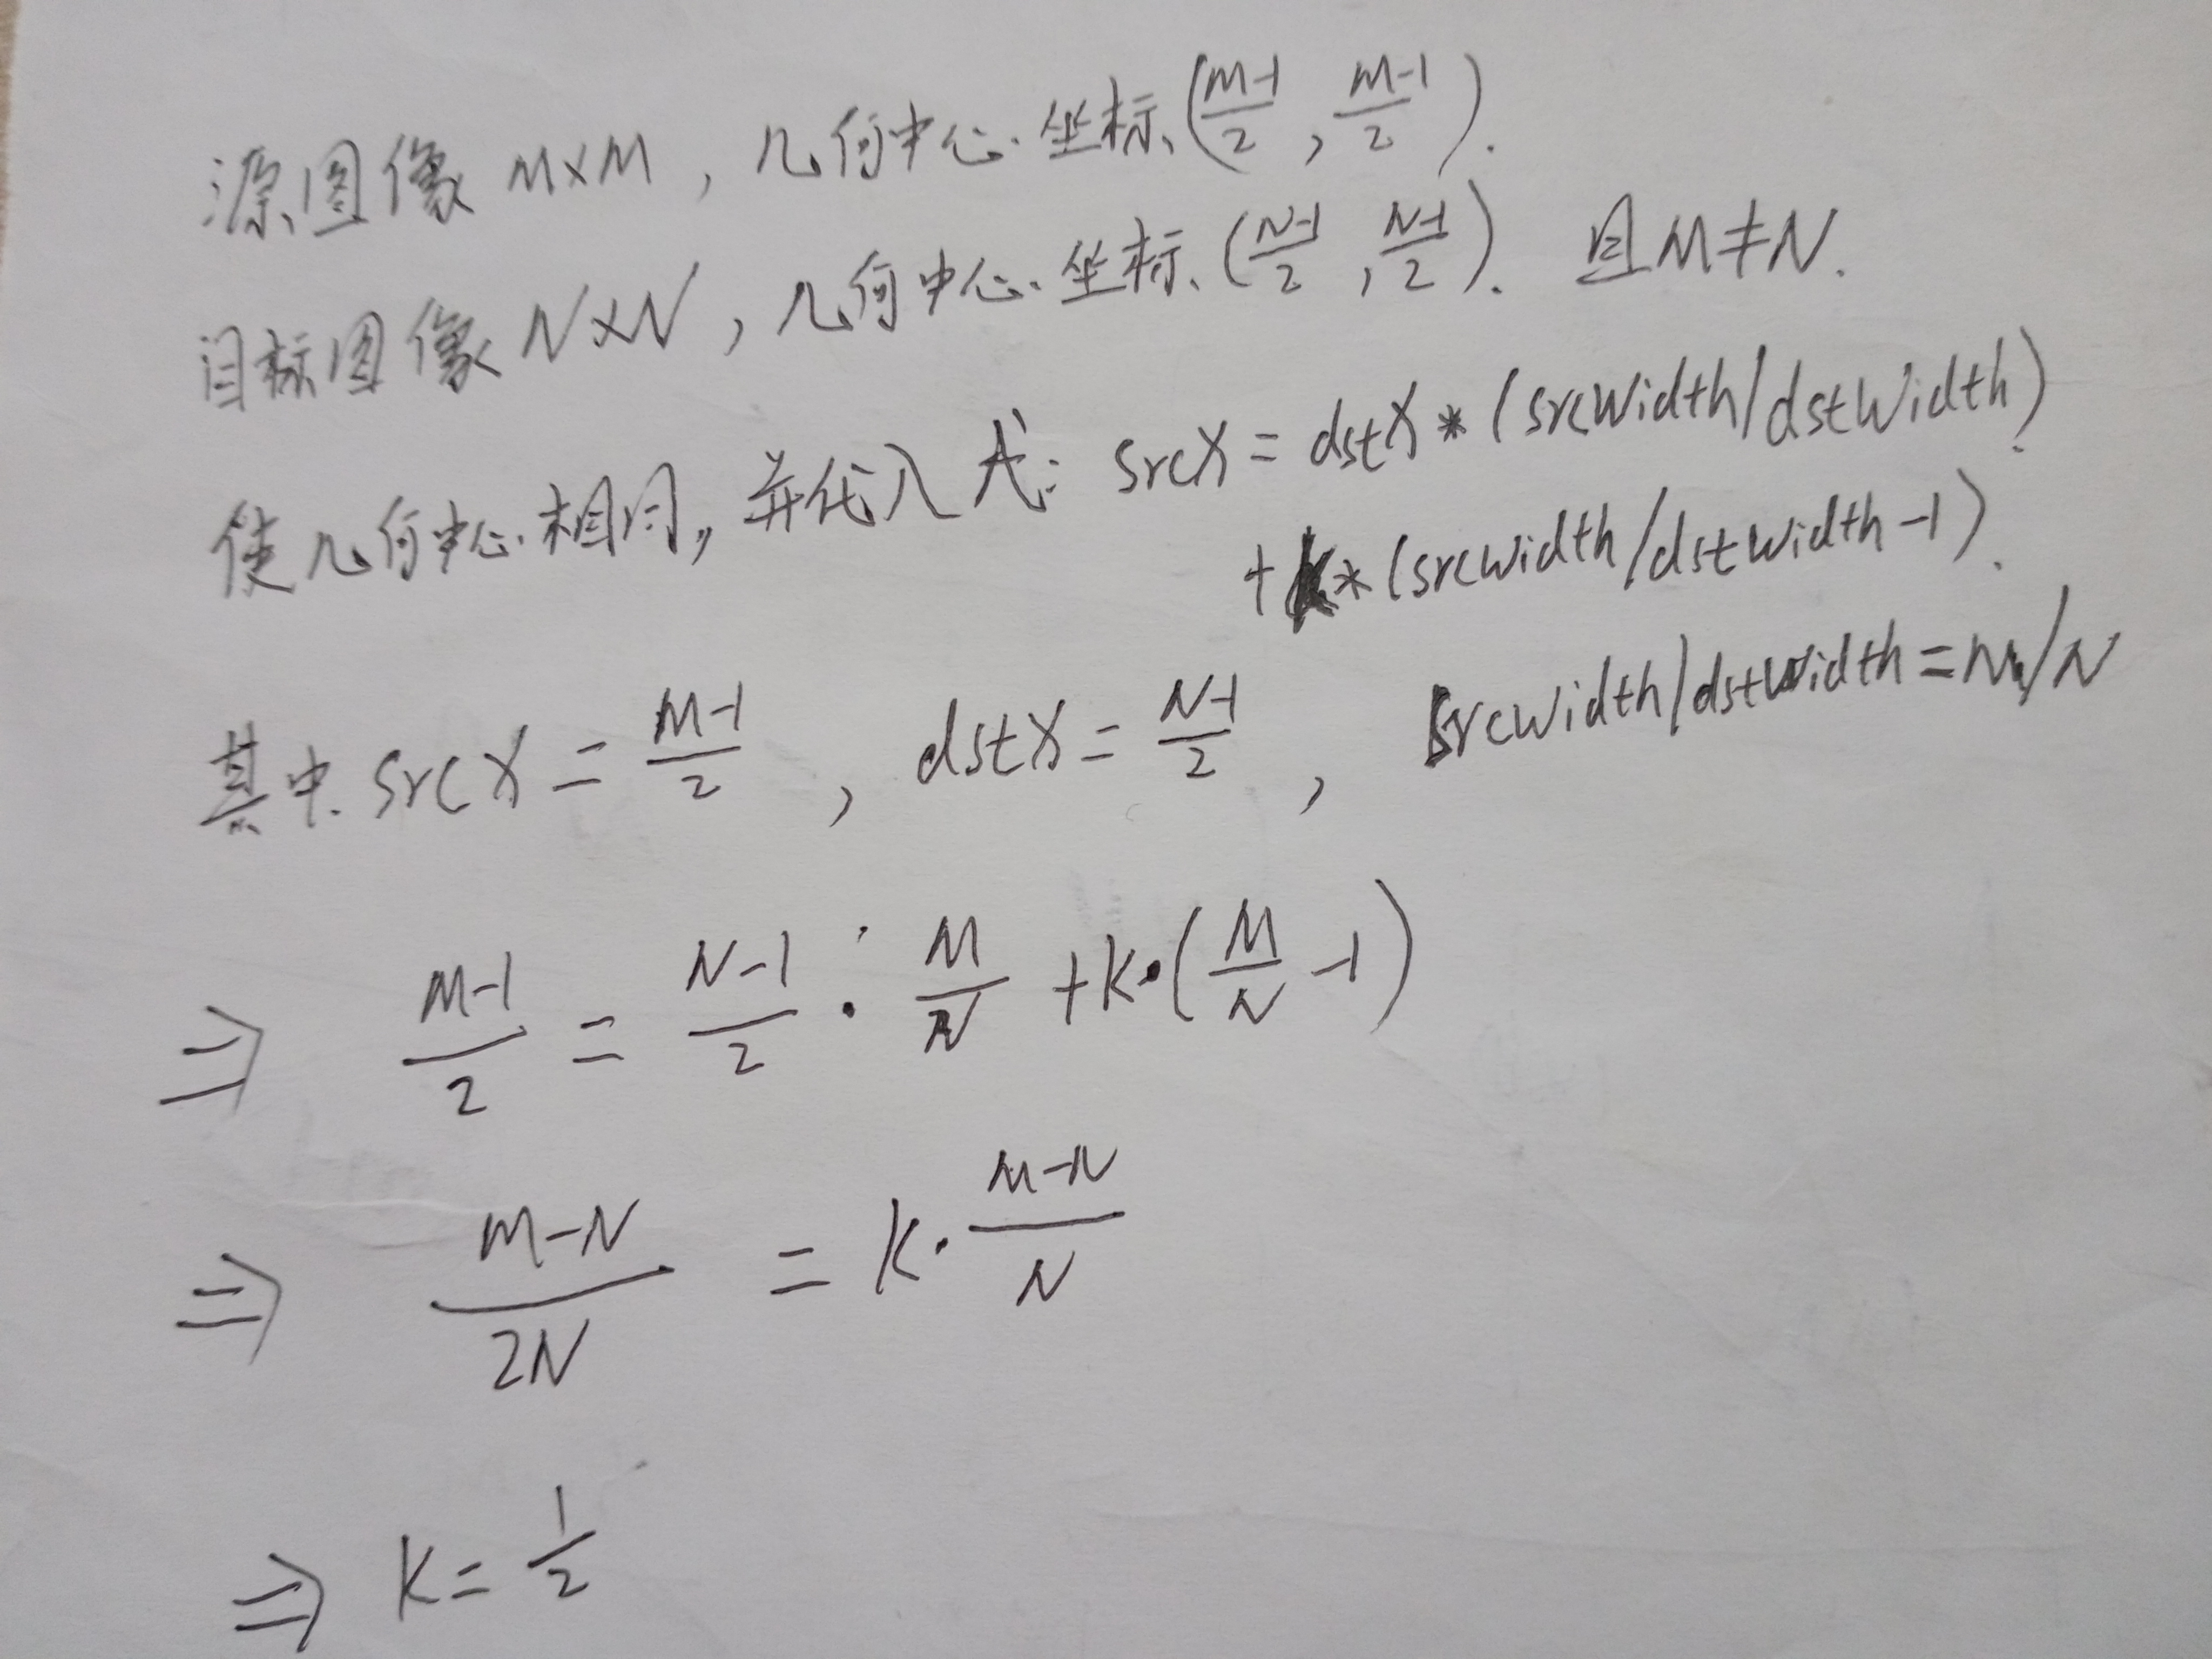 源图像 M×M，几何中心坐标(\frac{M-1}{2}, \frac{M-1}{2}).
目标图像 N×N，几何中心坐标(\frac{N-1}{2}, \frac{N-1}{2}). 且M≠N.
使几何中心相同，并代入式: srcX = dstX * (srcWidth/dstWidth)
+ k * (srcWidth/dstWidth - 1).
其中 srcX = \frac{M-1}{2}, dstX = \frac{N-1}{2}, srcWidth/dstWidth = M/N
⇒ \frac{M-1}{2} = \frac{N-1}{2} · \frac{M}{N} + k·(\frac{M}{N} - 1)
⇒ \frac{M-N}{2N} = k · \frac{M-N}{N}
⇒ k = \frac{1}{2}